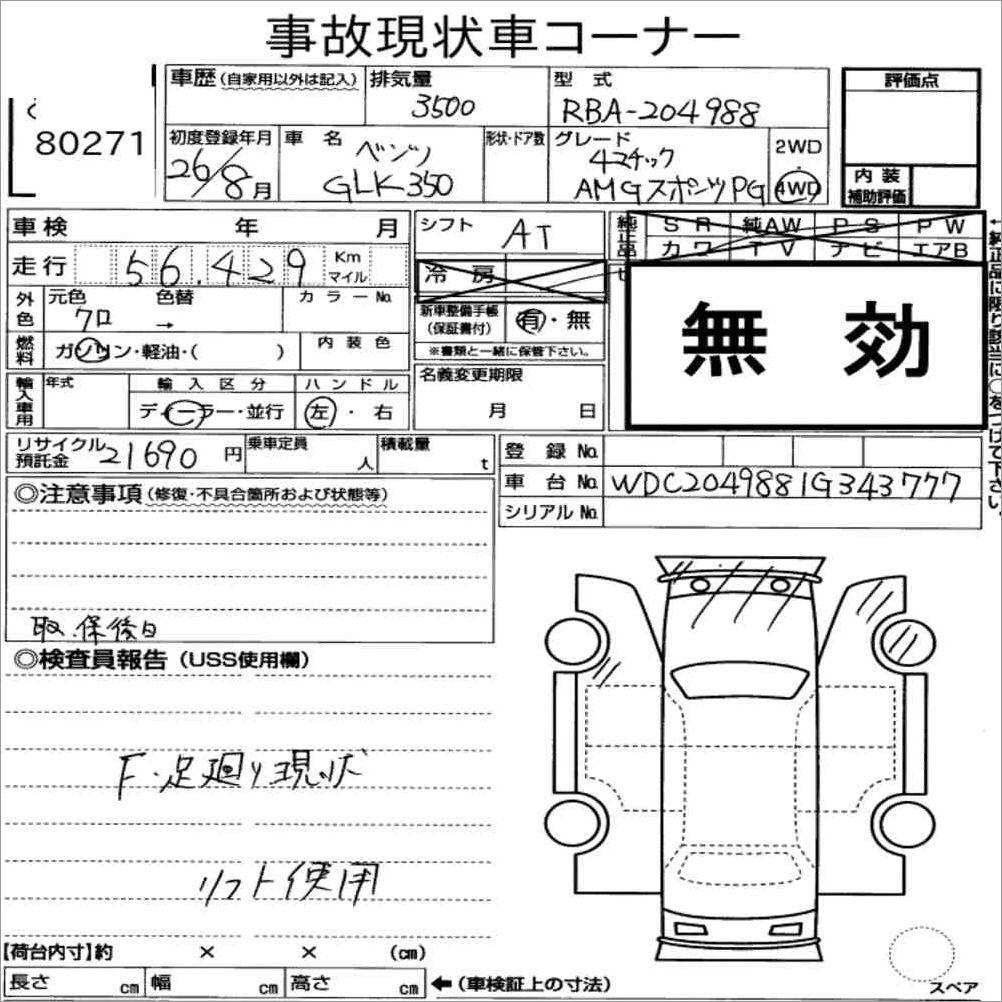 事故現状車コーナー
80271
車歴(自家用以外は記入)
排気量
3500
型式
RBA-204988
評価点
初度登録年月
26/8月
車名
ベンツ
GLK350
形状・ドア数
グレード
4マチック
AMGスポーツPG
2WD
4WD
内装
補助評価
車検 年 月
シフト
AT
純正品
SR 純AW PS PW
カワ TV ナビ エアB
走行 56.429 Km マイル
冷房
外色
元色 色替 カラーNo.
クロ →
新車整備手帳
(保証書付)
有・無
※書類と一緒に保管下さい。
無効
燃料
ガソリン・軽油・( )
内装色
輸入車用
年式
輸入区分
ディーラー・並行
ハンドル
左・右
名義変更期限
月 日
リサイクル預託金 21690円
乗車定員 人
積載量 t
登録No.
車台No. WDC2049881G343777
シリアルNo.
◎注意事項(修復・不具合箇所および状態等)
取.保後日
◎検査員報告(USS使用欄)
F・足廻り現状
リフト使用
【荷台内寸】約 × × (cm)
長さ cm 幅 cm 高さ cm ←(車検証上の寸法)
スペア